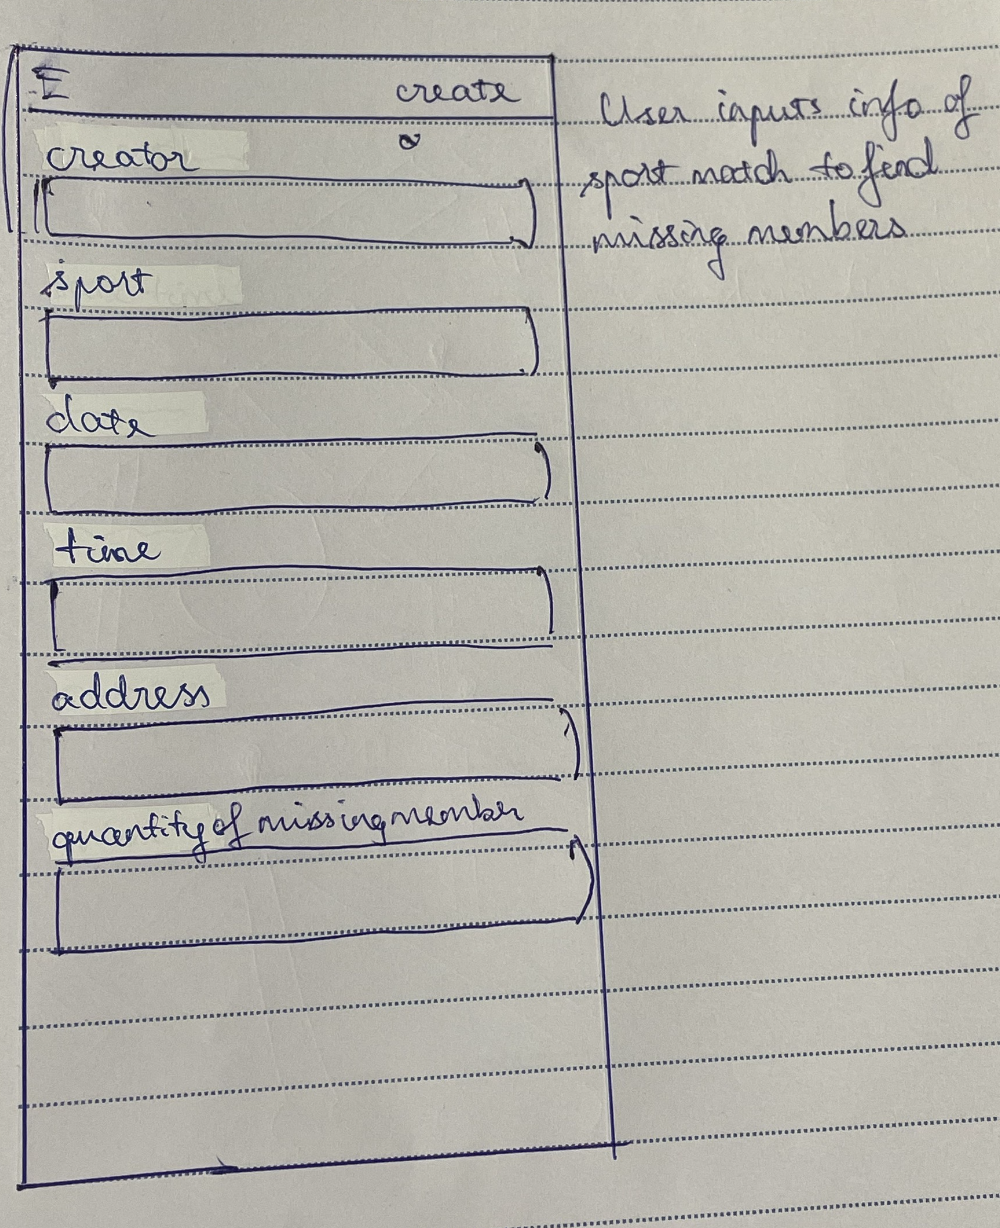 create
creator
sport
date
time
address
quantity of missing member
User inputs info of
sport match to find
missing members